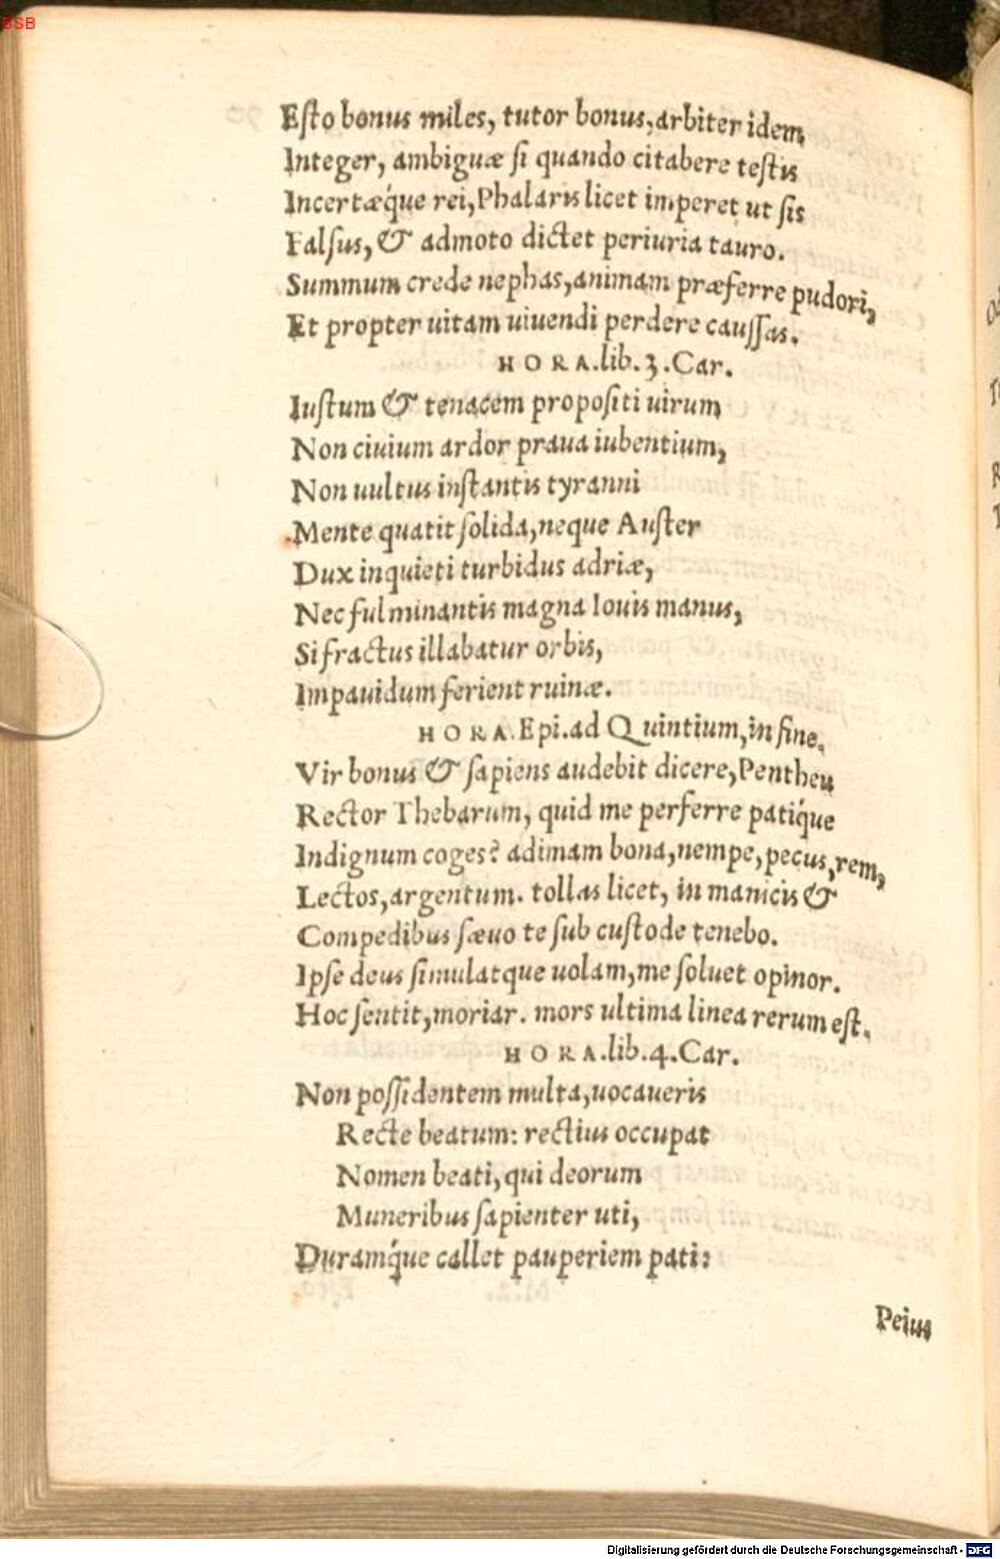 BSB
Esto bonus miles, tutor bonus, arbiter idem
Integer, ambiguæ si quando citabere testis
Incertæq́ue rei, Phalaris licet imperet ut sis
Falsus, & admoto dictet periuria tauro.
Summum crede nephas, animam præferre pudori,
Et propter uitam uiuendi perdere caussas.
HORA. lib. 3. Car.
Iustum & tenacem propositi uirum
Non ciuium ardor praua iubentium,
Non uultus instantis tyranni
Mente quatit solida, neque Auster
Dux inquieti turbidus adriæ,
Nec fulminantis magna Iouis manus,
Si fractus illabatur orbis,
Impauidum ferient ruinæ.
HORA. Epi. ad Quintium, in fine.
Vir bonus & sapiens audebit dicere, Pentheu
Rector Thebarum, quid me perferre patiq́ue
Indignum coges? adimam bona, nempe, pecus, rem,
Lectos, argentum. tollas licet, in manicis &
Compedibus sæuo te sub custode tenebo.
Ipse deus simulatque uolam, me soluet opinor.
Hoc sentit, moriar. mors ultima linea rerum est.
HORA. lib. 4. Car.
Non possidentem multa, uocaueris
Recte beatum: rectius occupat
Nomen beati, qui deorum
Muneribus sapienter uti,
Duramq́ue callet pauperiem pati:
Peius
Digitalisierung gefördert durch die Deutsche Forschungsgemeinschaft - DFG